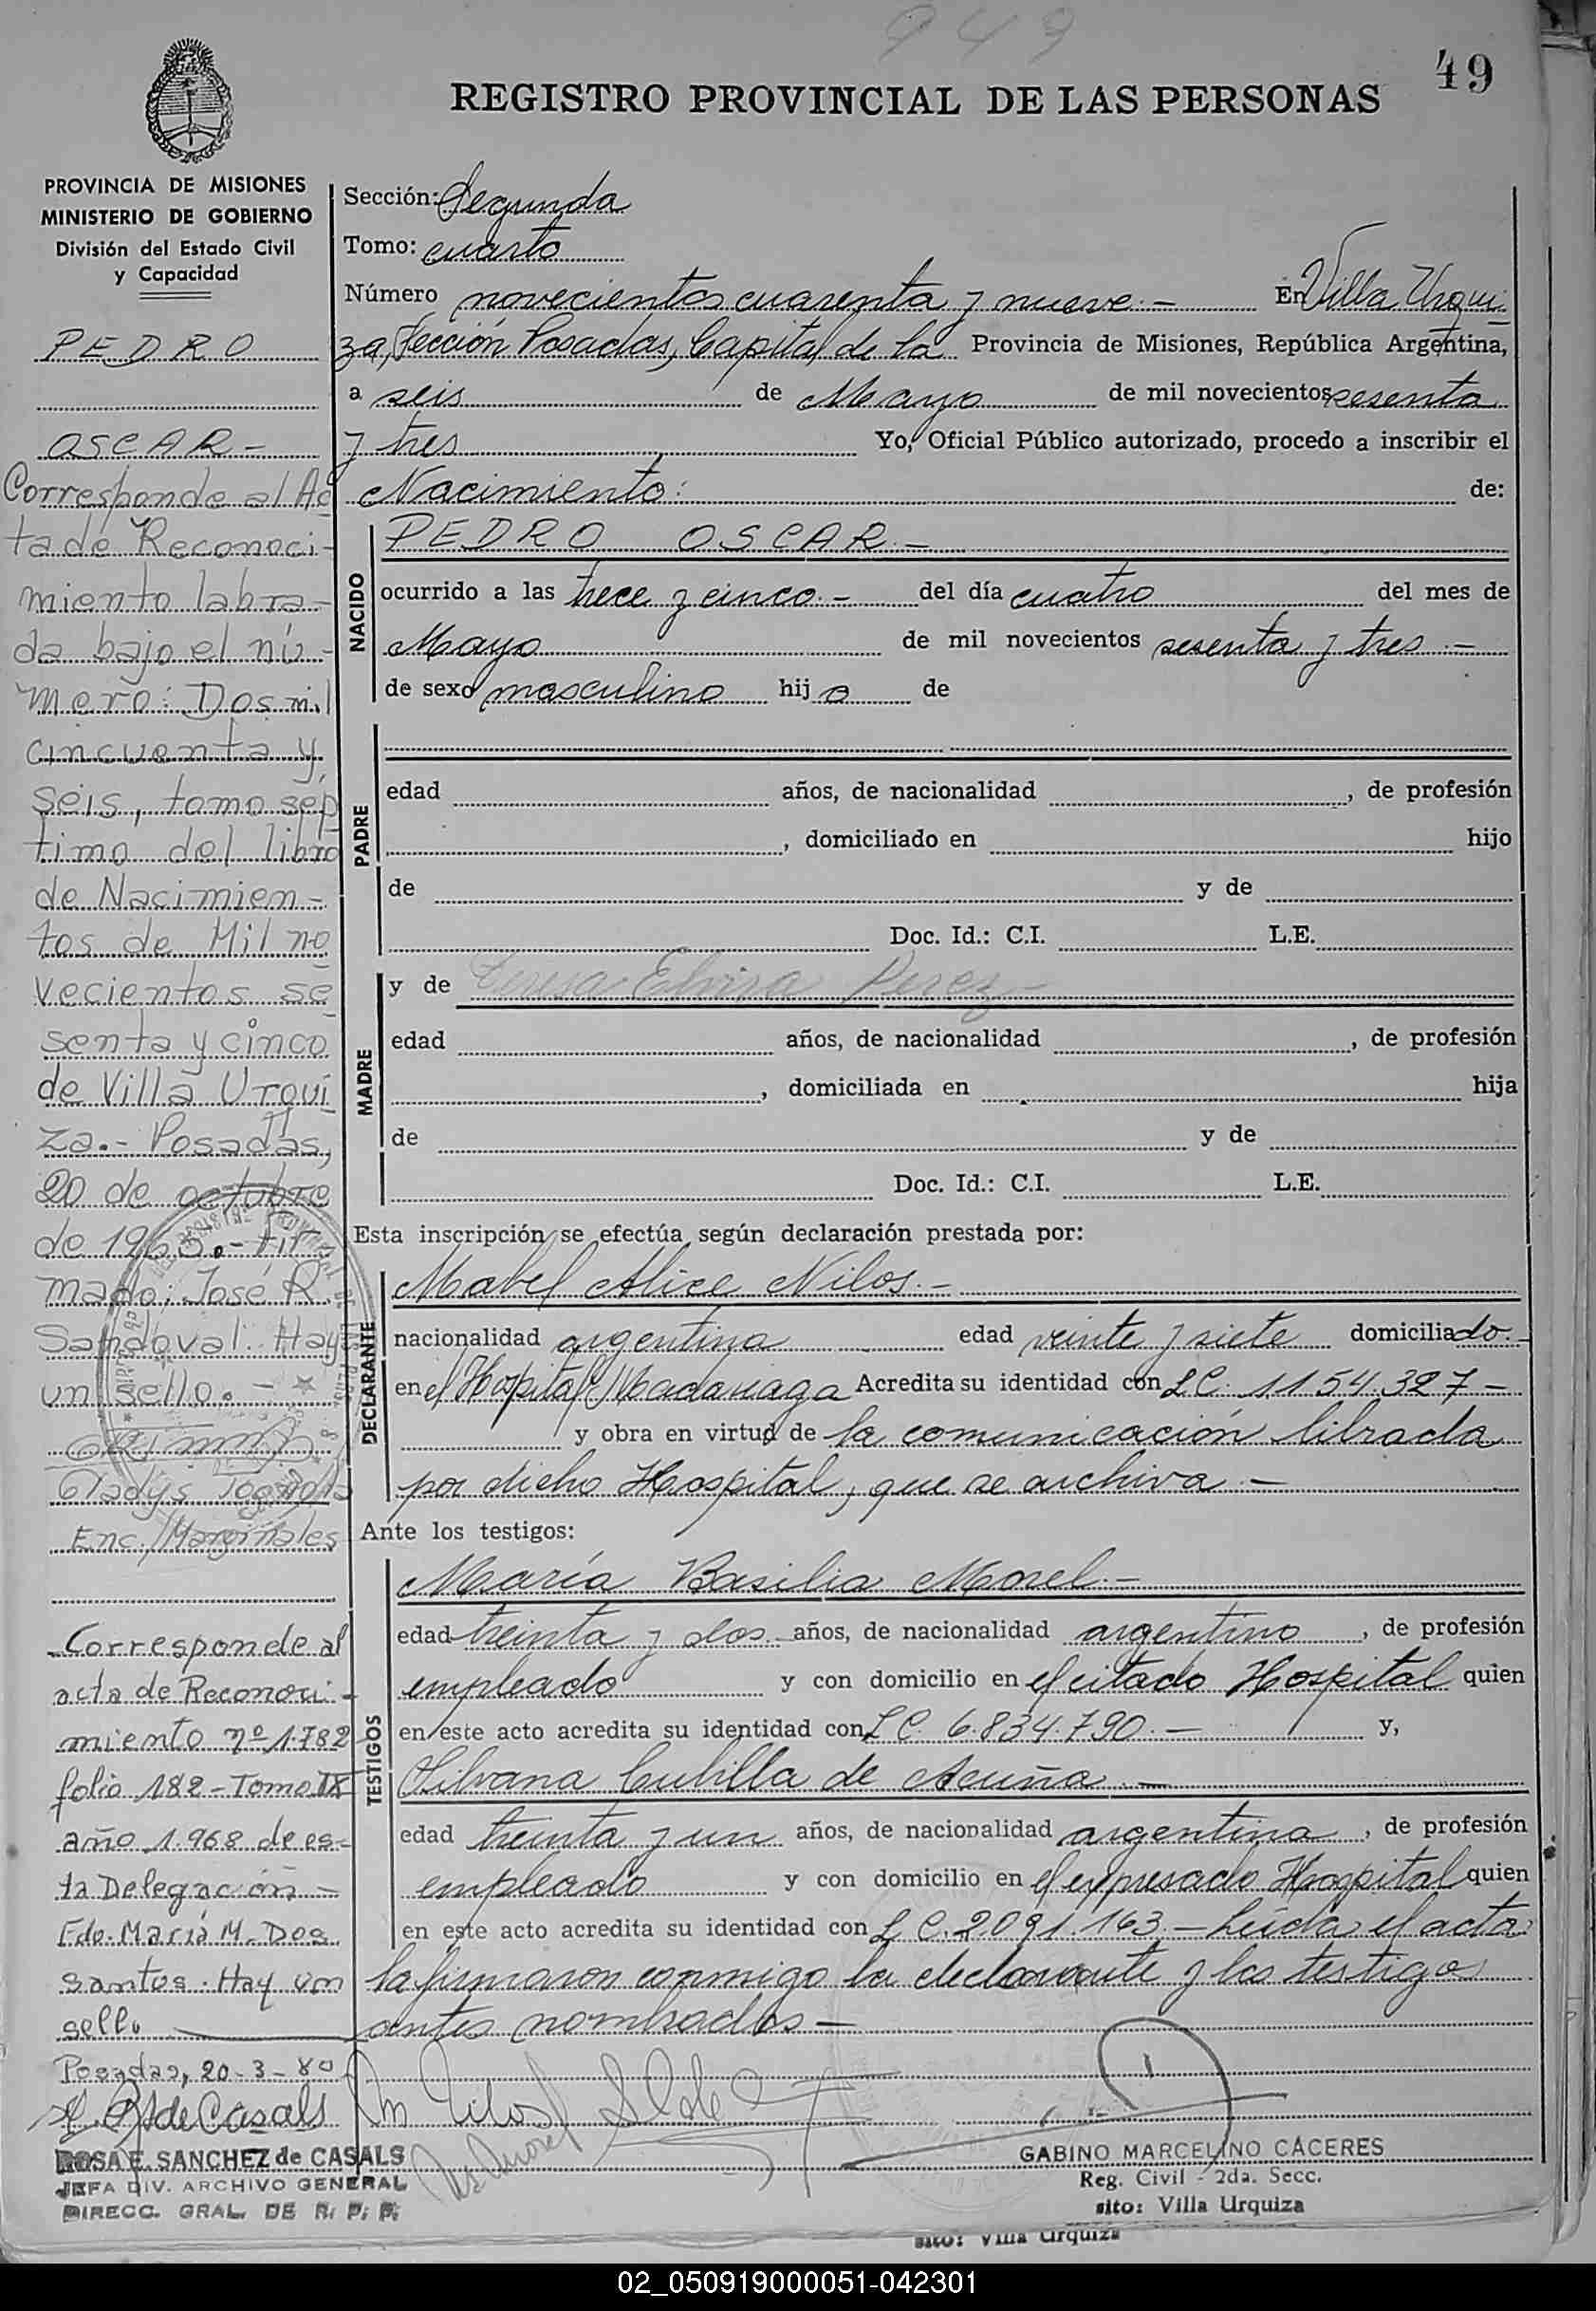 949
49
REGISTRO PROVINCIAL DE LAS PERSONAS
PROVINCIA DE MISIONES
MINISTERIO DE GOBIERNO
División del Estado Civil
y Capacidad
PEDRO
OSCAR -
Corresponde al Ac
ta de Reconoci-
miento labra-
da bajo el nú-
mero: Dos mil
cincuenta y
seis, tomo sép
timo del libro
de Nacimien-
tos de Mil no
vecientos se
senta y cinco
de Villa Urqui
za.- Posadas,
20 de octubre
de 1965.- Fir-
mado: José R.
Sandoval. Hay
un sello. -
Gladys
Enc./Marginales
-Corresponde al
acta de Reconoci-
miento nº 1.782
folio 182 - Tomo IX
año 1.968 de es-
ta Delegación -
Fdo. María M. Dos
santos. Hay un
sello
Posadas, 20-3-80
de Casals
ROSA E. SANCHEZ de CASALS
JEFA DIV. ARCHIVO GENERAL
DIRECC. GRAL. DE R. P. P.
Sección: Segunda
Tomo: cuarto
Número novecientos cuarenta y nueve.- En Villa Urqui
za, Sección Posadas, Capital de la Provincia de Misiones, República Argentina,
a seis de Mayo de mil novecientos sesenta
y tres Yo, Oficial Público autorizado, procedo a inscribir el
Nacimiento: de:
NACIDO
PEDRO OSCAR.-
ocurrido a las trece y cinco.- del día cuatro del mes de
Mayo de mil novecientos sesenta y tres.-
de sexo masculino hij o de
PADRE
edad años, de nacionalidad , de profesión
, domiciliado en hijo
de y de
Doc. Id.: C.I. L.E.
MADRE
y de Teresa Elvira Perez-
edad años, de nacionalidad , de profesión
, domiciliada en hija
de y de
Doc. Id.: C.I. L.E.
Esta inscripción se efectúa según declaración prestada por:
DECLARANTE
Mabel Alice Nilos.-
nacionalidad argentina edad veinte y siete domiciliado.-
en el Hospital Madariaga Acredita su identidad con L C. 1154.327-
y obra en virtud de la comunicación librada
por dicho Hospital, que se archiva.-
Ante los testigos:
TESTIGOS
María Basilia Morel.-
edad treinta y dos.- años, de nacionalidad argentino , de profesión
empleado y con domicilio en el citado Hospital quien
en este acto acredita su identidad con L C. 6.834.790.- y,
Silvana Cubilla de Acuña.-
edad treinta y un años, de nacionalidad argentina , de profesión
empleado y con domicilio en el expresado Hospital quien
en este acto acredita su identidad con L C. 2.091.163.- Leída el acta
la firmaron conmigo la declarante y los testigos
antes nombrados -
GABINO MARCELINO CACERES
Reg. Civil - 2da. Secc.
sito: Villa Urquiza
sito: Villa Urquiza
02_050919000051-042301